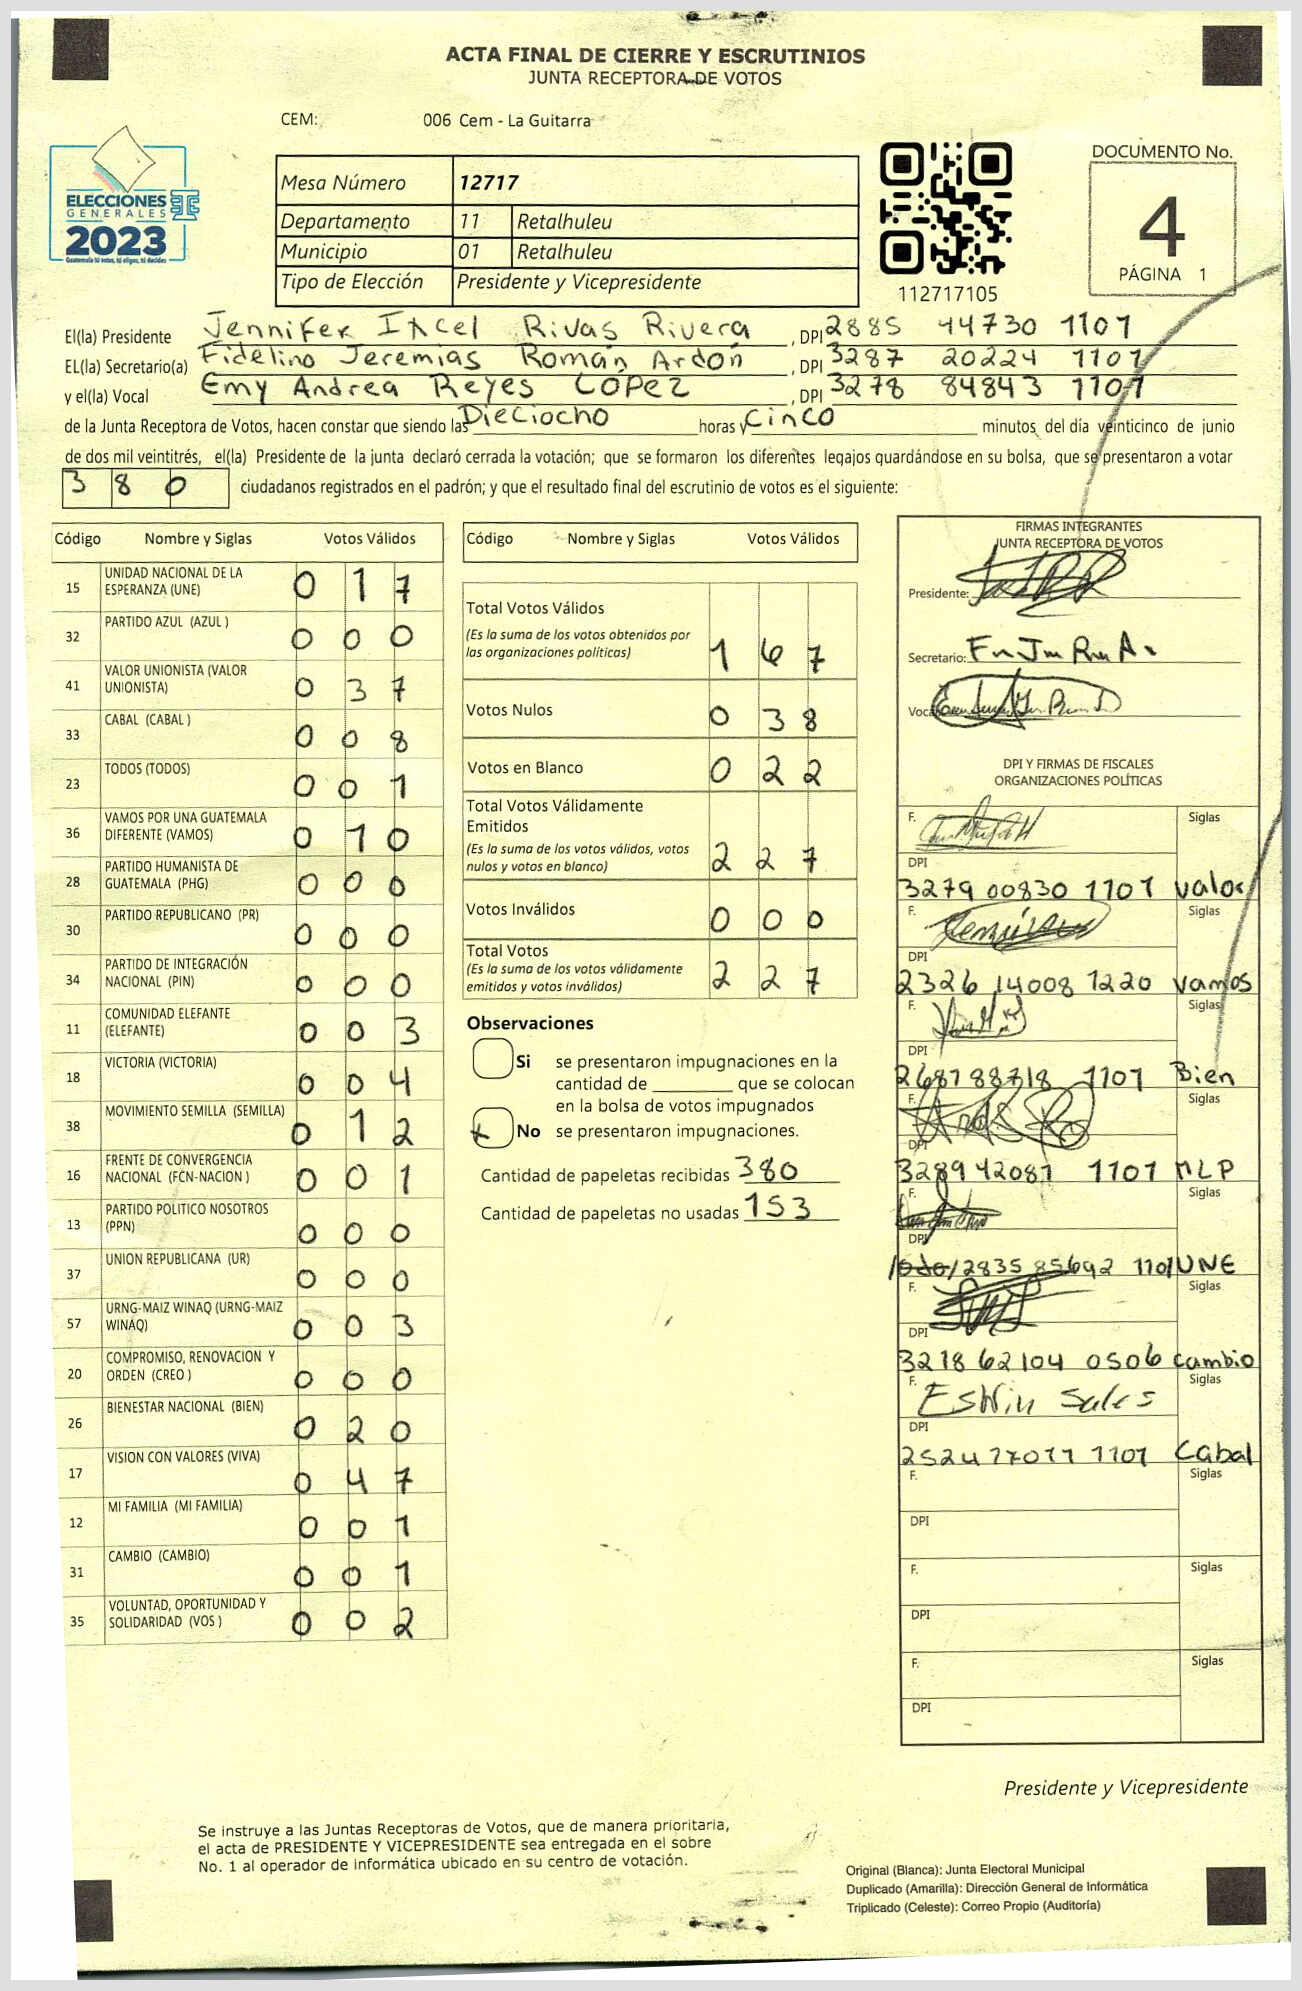 ACTA FINAL DE CIERRE Y ESCRUTINIOS
JUNTA RECEPTORA DE VOTOS
CEM: 006 Cem - La Guitarra
ELECCIONES
GENERALES
2023
Guatemala tú votas, tú eliges, tú decides
Mesa Número 12717
Departamento 11 Retalhuleu
Municipio 01 Retalhuleu
Tipo de Elección Presidente y Vicepresidente
112717105
DOCUMENTO No.
4
PÁGINA 1
El(la) Presidente Jennifer Ixcel Rivas Rivera , DPI 2885 44730 1101
EL(la) Secretario(a) Fidelino Jeremias Román Ardón , DPI 3287 20224 1101
y el(la) Vocal Emy Andrea Reyes LOPez , DPI 3278 84843 1101
de la Junta Receptora de Votos, hacen constar que siendo las Dieciocho horas y Cinco minutos del día veinticinco de junio
de dos mil veintitrés, el(la) Presidente de la junta declaró cerrada la votación; que se formaron los diferentes legajos quardándose en su bolsa, que se presentaron a votar
3 8 0 ciudadanos registrados en el padrón; y que el resultado final del escrutinio de votos es el siguiente:
Código Nombre y Siglas Votos Válidos
15 UNIDAD NACIONAL DE LA
ESPERANZA (UNE) 0 1 7
32 PARTIDO AZUL (AZUL ) 0 0 0
41 VALOR UNIONISTA (VALOR
UNIONISTA) 0 3 7
33 CABAL (CABAL ) 0 0 8
23 TODOS (TODOS) 0 0 1
36 VAMOS POR UNA GUATEMALA
DIFERENTE (VAMOS) 0 1 0
28 PARTIDO HUMANISTA DE
GUATEMALA (PHG) 0 0 0
30 PARTIDO REPUBLICANO (PR) 0 0 0
34 PARTIDO DE INTEGRACIÓN
NACIONAL (PIN) 0 0 0
11 COMUNIDAD ELEFANTE
(ELEFANTE) 0 0 3
18 VICTORIA (VICTORIA) 0 0 4
38 MOVIMIENTO SEMILLA (SEMILLA) 0 1 2
16 FRENTE DE CONVERGENCIA
NACIONAL (FCN-NACION ) 0 0 1
13 PARTIDO POLITICO NOSOTROS
(PPN) 0 0 0
37 UNION REPUBLICANA (UR) 0 0 0
57 URNG-MAIZ WINAQ (URNG-MAIZ
WINAQ) 0 0 3
20 COMPROMISO, RENOVACION Y
ORDEN (CREO ) 0 0 0
26 BIENESTAR NACIONAL (BIEN) 0 2 0
17 VISION CON VALORES (VIVA) 0 4 7
12 MI FAMILIA (MI FAMILIA) 0 0 1
31 CAMBIO (CAMBIO) 0 0 1
35 VOLUNTAD, OPORTUNIDAD Y
SOLIDARIDAD (VOS ) 0 0 2
Código Nombre y Siglas Votos Válidos
Total Votos Válidos
(Es la suma de los votos obtenidos por
las organizaciones políticas) 1 6 7
Votos Nulos 0 3 8
Votos en Blanco 0 2 2
Total Votos Válidamente
Emitidos
(Es la suma de los votos válidos, votos
nulos y votos en blanco) 2 2 7
Votos Inválidos 0 0 0
Total Votos
(Es la suma de los votos válidamente
emitidos y votos inválidos) 2 2 7
Observaciones
Si se presentaron impugnaciones en la
cantidad de ________ que se colocan
en la bolsa de votos impugnados
No se presentaron impugnaciones.
Cantidad de papeletas recibidas 380
Cantidad de papeletas no usadas 153
FIRMAS INTEGRANTES
JUNTA RECEPTORA DE VOTOS
Presidente:
Secretario:
Vocal
DPI Y FIRMAS DE FISCALES
ORGANIZACIONES POLÍTICAS
F. Siglas
DPI
3279 00830 1101 valor
F. Siglas
DPI
2326 14008 1220 vamos
F. Siglas
DPI
2687 88718 1101 Bien
F. Siglas
DPI
3289 42081 1101 MLP
F. Siglas
DPI
2835 85692 1101 UNE
F. Siglas
DPI
3218 62104 0506 cambio
F. Eswin Sales Siglas
DPI
1101 Cabal
F. Siglas
DPI
F. Siglas
DPI
F. Siglas
DPI
Presidente y Vicepresidente
Se instruye a las Juntas Receptoras de Votos, que de manera prioritaria,
el acta de PRESIDENTE Y VICEPRESIDENTE sea entregada en el sobre
No. 1 al operador de informática ubicado en su centro de votación.
Original (Blanca): Junta Electoral Municipal
Duplicado (Amarilla): Dirección General de Informática
Triplicado (Celeste): Correo Propio (Auditoría)